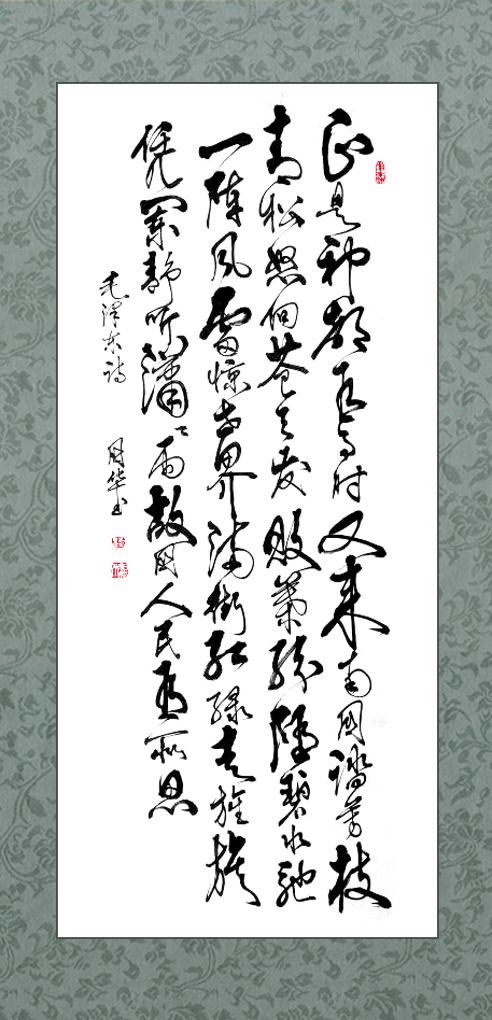 正是神都有事时又来南国踏芳枝
青松怒向苍天发败葉纷随碧水驰
一阵风雷惊世界满街红绿走旌旗
凭阑静听潇々雨故国人民有所思
毛泽东诗